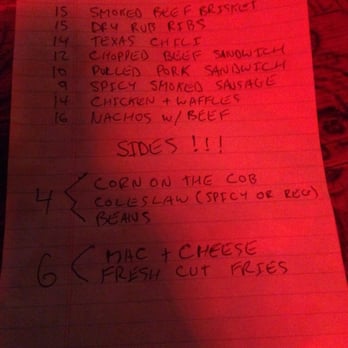 15 SMOKED BEEF BRISKET
15 DRY RUB RIBS
14 TEXAS CHILI
12 CHOPPED BEEF SANDWICH
10 PULLED PORK SANDWICH
9 SPICY SMOKED SAUSAGE
14 CHICKEN + WAFFLES
16 NACHOS W/ BEEF
SIDES !!!
CORN ON THE COB
4 COLESLAW (SPICY OR REG)
BEANS
6 MAC + CHEESE
FRESH CUT FRIES